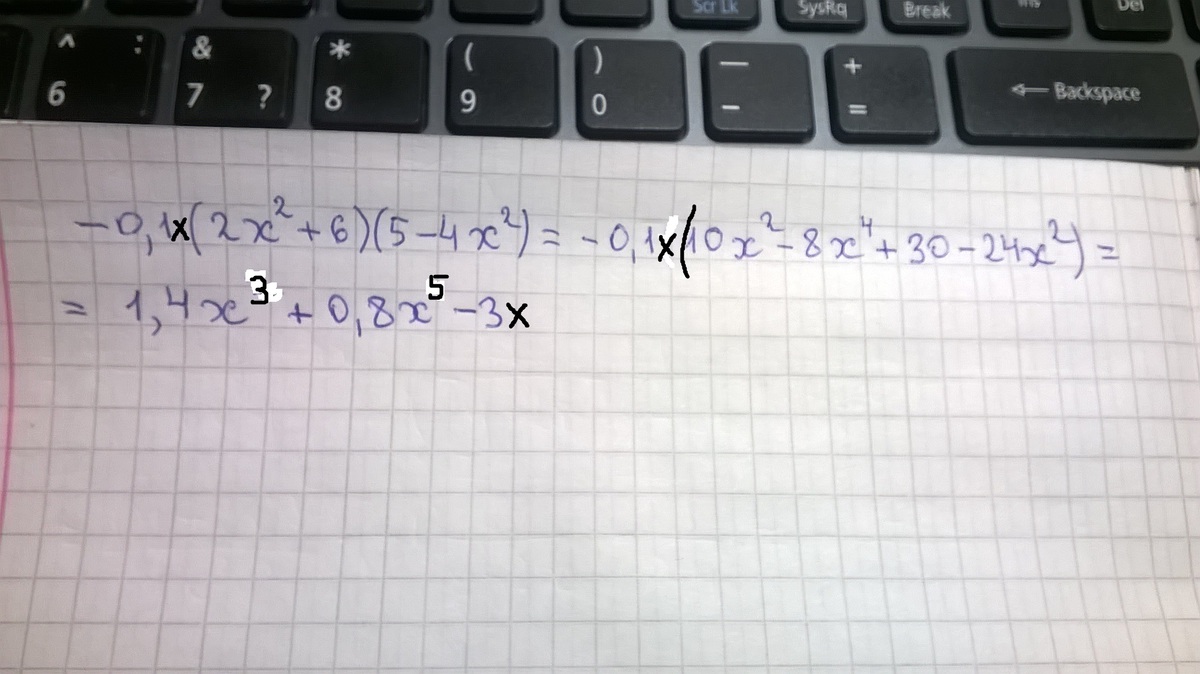 Scr Lk SysRq Break Ins Del
^ : & * ( ) — + ← Backspace
6 7 ? 8 9 0 - =
-0,1x(2x²+6)(5-4x²)= -0,1x(10x²-8x⁴+30-24x²)=
= 1,4x³+0,8x⁵-3x